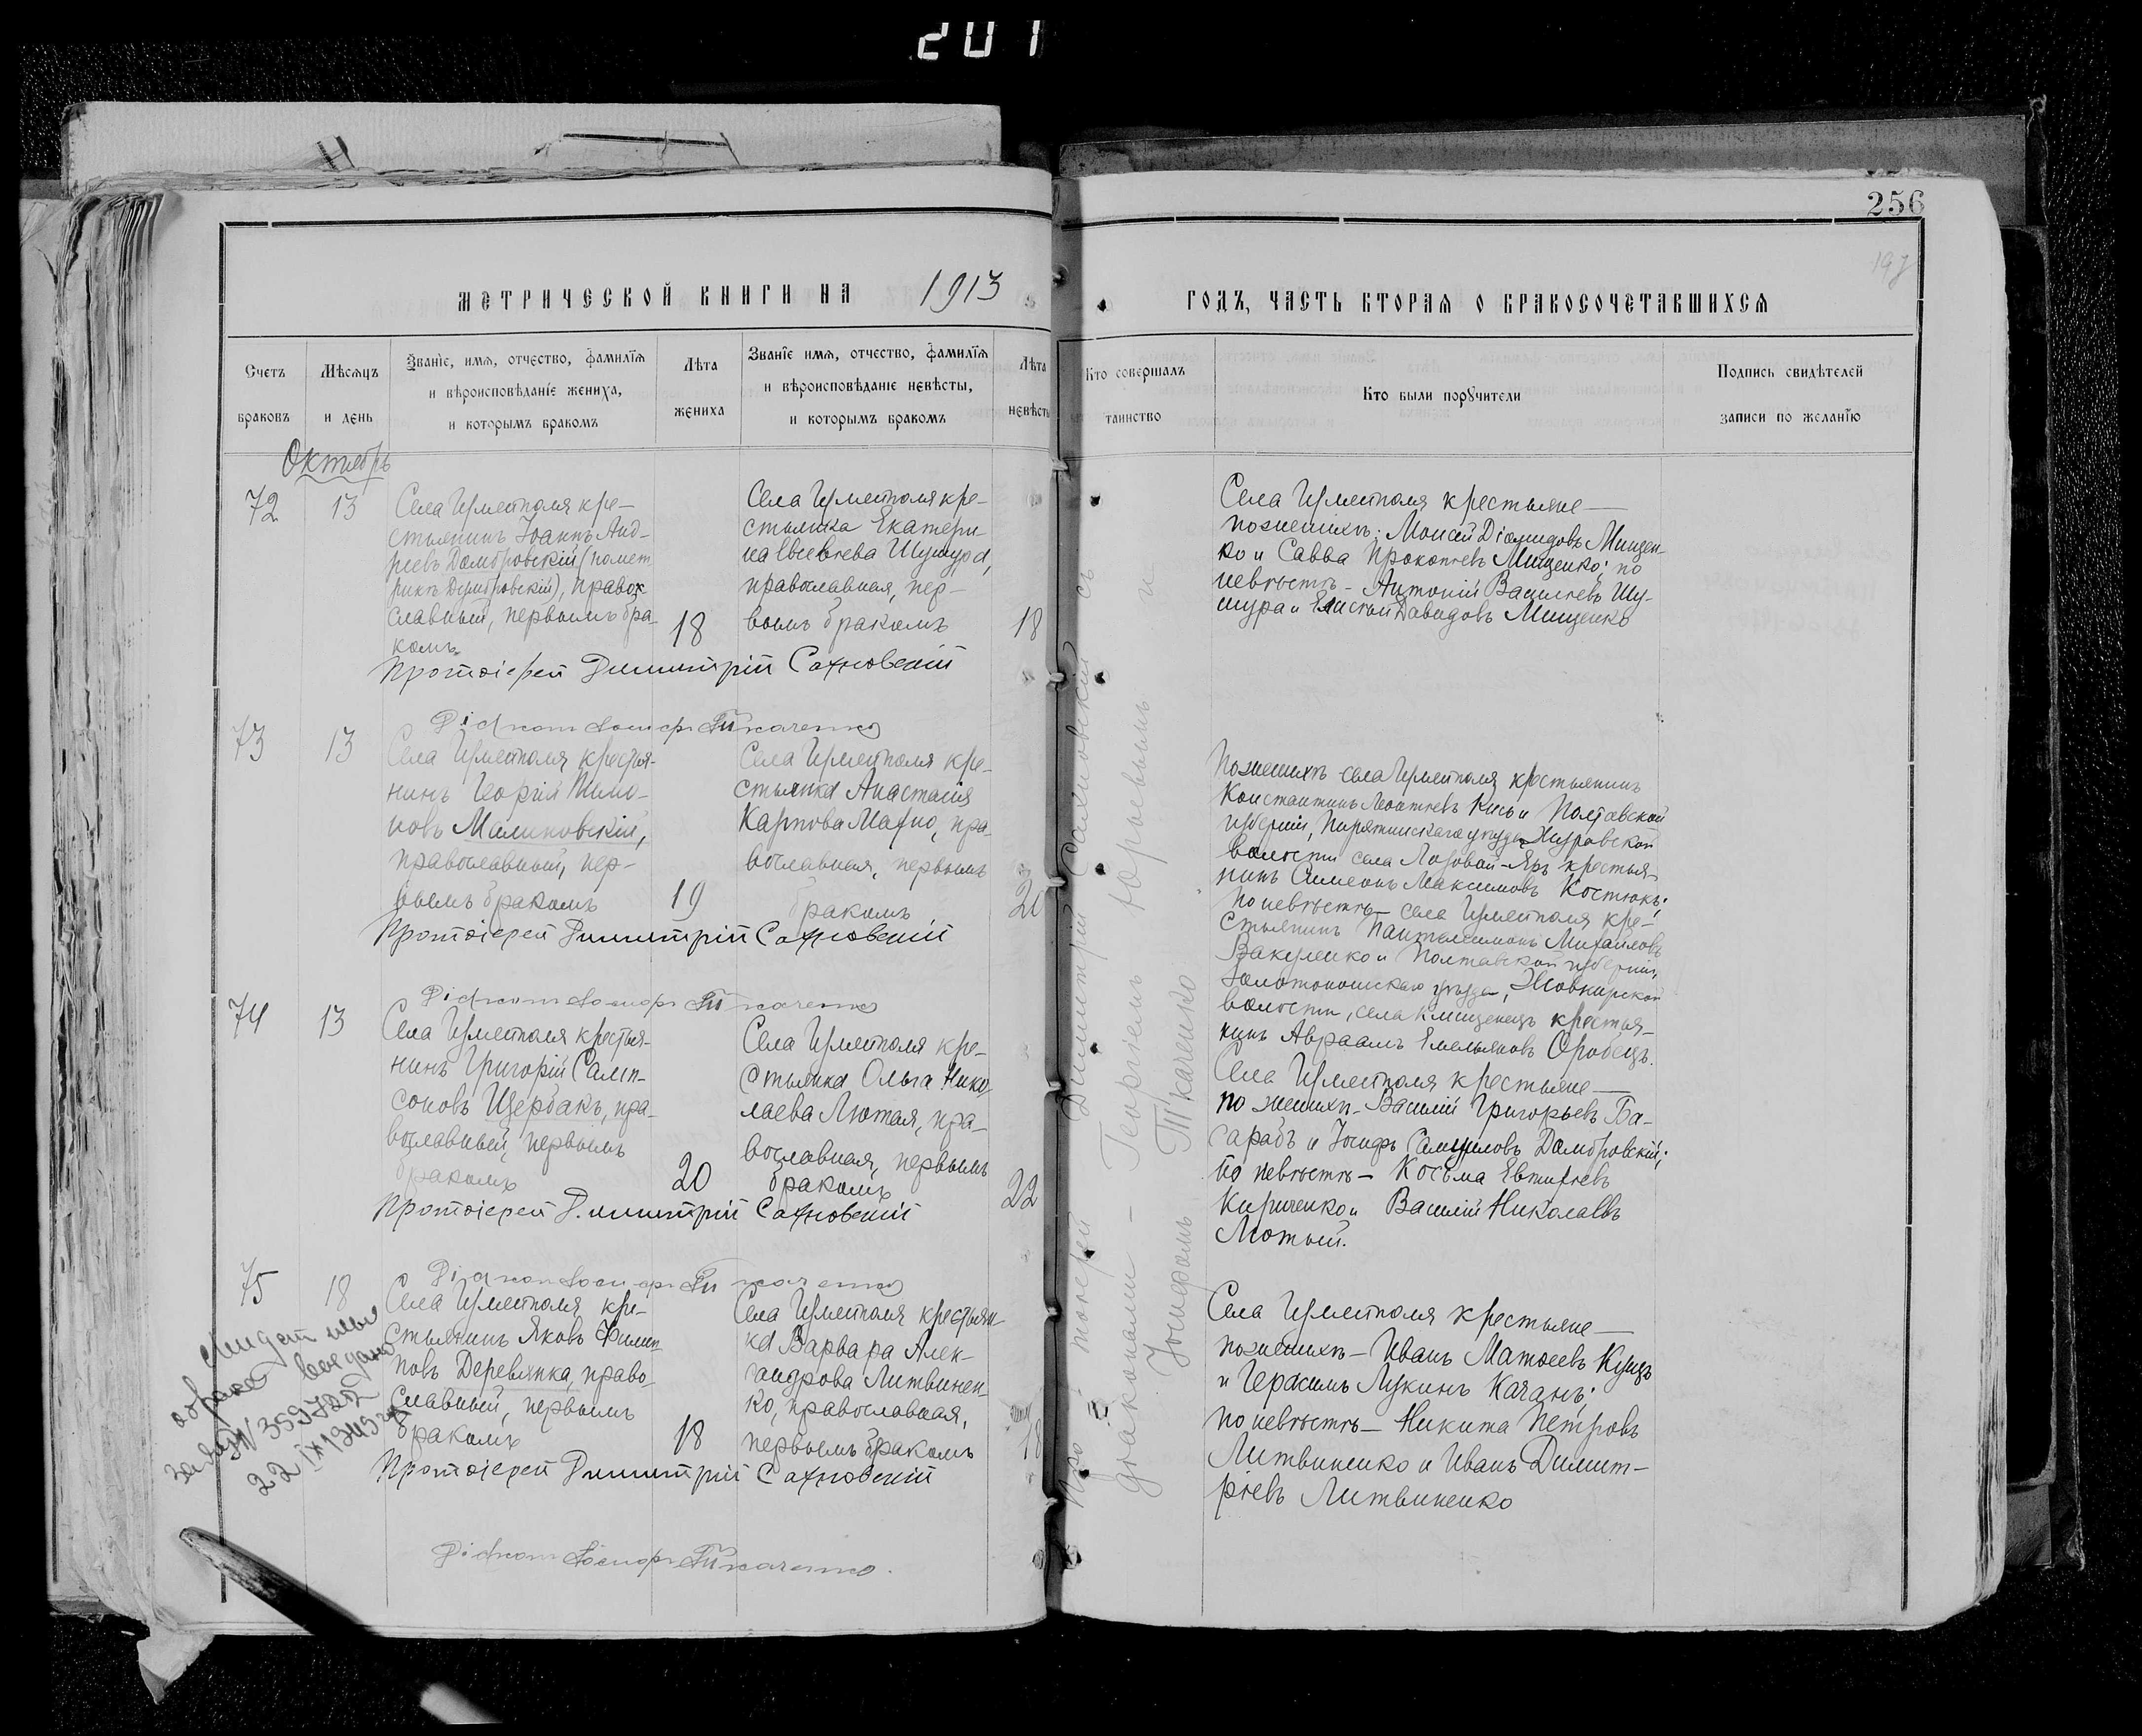 201
256
197
МЕТРИЧЕСКОЙ КНИГИ НА 1913
ГОДЪ, ЧАСТЬ ВТОРАЯ О БРАКОСОЧЕТАВШИХСЯ
Счетъ
браковъ
Мѣсяцъ
и день
Званіе, имя, отчество, фамилія
и вѣроисповѣданіе жениха,
и которымъ бракомъ
Лѣта
жениха
Званіе имя, отчество, фамилія
и вѣроисповѣданіе невѣсты,
и которымъ бракомъ
Лѣта
невѣсты
Кто совершалъ
таинство
Кто были порꙋчители
Подпись свидѣтелей
записи по желанію
Октябрь
72
13
Села Ирметполя кре-
стьянинъ Іоаннъ Анд-
реевъ Домбровскій (помет
рикѣ Думбровскій), право-
славный, первымъ бра-
комъ
18
Села Ирметполя кре-
стьянка Екатери-
на Евсевіева Шушура,
православная, пер-
вымъ бракомъ
18
Протоіерей Димитрій Сахновскій
Діаконъ Іосифъ Ткаченко
Села Ирметполя крестьяне
по женихѣ: Моисей Діомидовъ Мищен-
ко и Савва Прокопіевъ Мищенко; по
невѣстѣ - Антоній Василіевъ Шу-
шура и Елисей Давидовъ Мищенко
73
13
Села Ирметполя крестья-
нинъ Георгій Тимо-
новъ Малиновскій,
православный, пер-
вымъ бракомъ
19
Села Ирметполя кре-
стьянка Анастасія
Карпова Махно, пра-
вославная, первымъ
бракомъ
20
Протоіерей Димитрій Сахновскій
Діаконъ Іосифъ Ткаченко
По женихѣ села Ирметполя крестьянинъ
Константинъ Леонтіевъ Кись и Полтавской
губерніи, Пирятинскаго уѣзда Журовской
волости села Лозовой-Яръ крестья-
нинъ Симеонъ Максимовъ Костюкъ;
По невѣстѣ - села Ирметполя кре-
стьянинъ Пантелеимонъ Михайловъ
Вакуленко и Полтавской губерніи,
Золотоношскаго уѣзда,
волости, села Клищенецъ крестья-
нинъ Авраамъ Емельяновъ Оробецъ.
74
13
Села Ирметполя крестья-
нинъ Григорій Самп-
соновъ Щербакъ, пра-
вославный, первымъ
бракомъ
20
Села Ирметполя кре-
стьянка Ольга Нико-
лаева Лютая, пра-
вославная, первымъ
бракомъ
22
Протоіерей Димитрій Сахновскій
Діаконъ Іосифъ Ткаченко
Села Ирметполя крестьяне
по женихѣ - Василій Григорьевъ Ба-
сарабъ и Іосифъ Самуиловъ Домбровскій;
по невѣстѣ - Косьма Евтихіевъ
Кириченко и Василій Николаевъ
Лютый.
75
18
Села Ирметполя кре-
стьянинъ Яковъ Филип-
повъ Деревянка, право-
славный, первымъ
бракомъ
18
Села Ирметполя крестьян-
ка Варвара Алек-
сандрова Литвинен-
ко, православная,
первымъ бракомъ
18
Протоіерей Димитрій Сахновскій
Діаконъ Іосифъ Ткаченко.
Села Ирметполя крестьяне
по женихѣ - Иванъ Матѳеевъ Куцъ
и Герасимъ Лукинъ Качанъ;
по невѣстѣ - Никита Петровъ
Литвиненко и Иванъ Димит-
ріевъ Литвиненко
Протоіерей Димитрій Сахновскій съ
діаконами - Георгіемъ Юрьевымъ и
Іосифомъ Ткаченко
о браке выдано
22 IX 1949